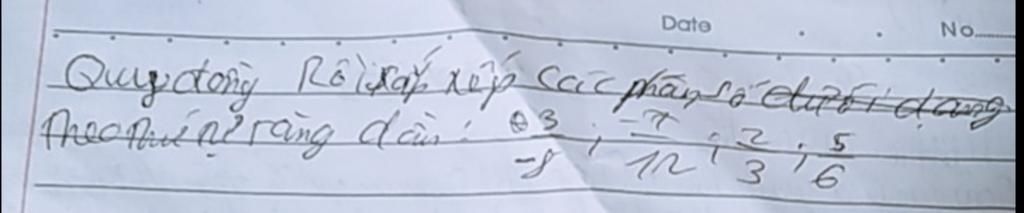 Date No
Quy đồng Rồi xắp xếp các phân số dưới dạng
Theo thứ tự tăng dần: 3/-8 ; -7/12 ; 2/3 ; 5/6